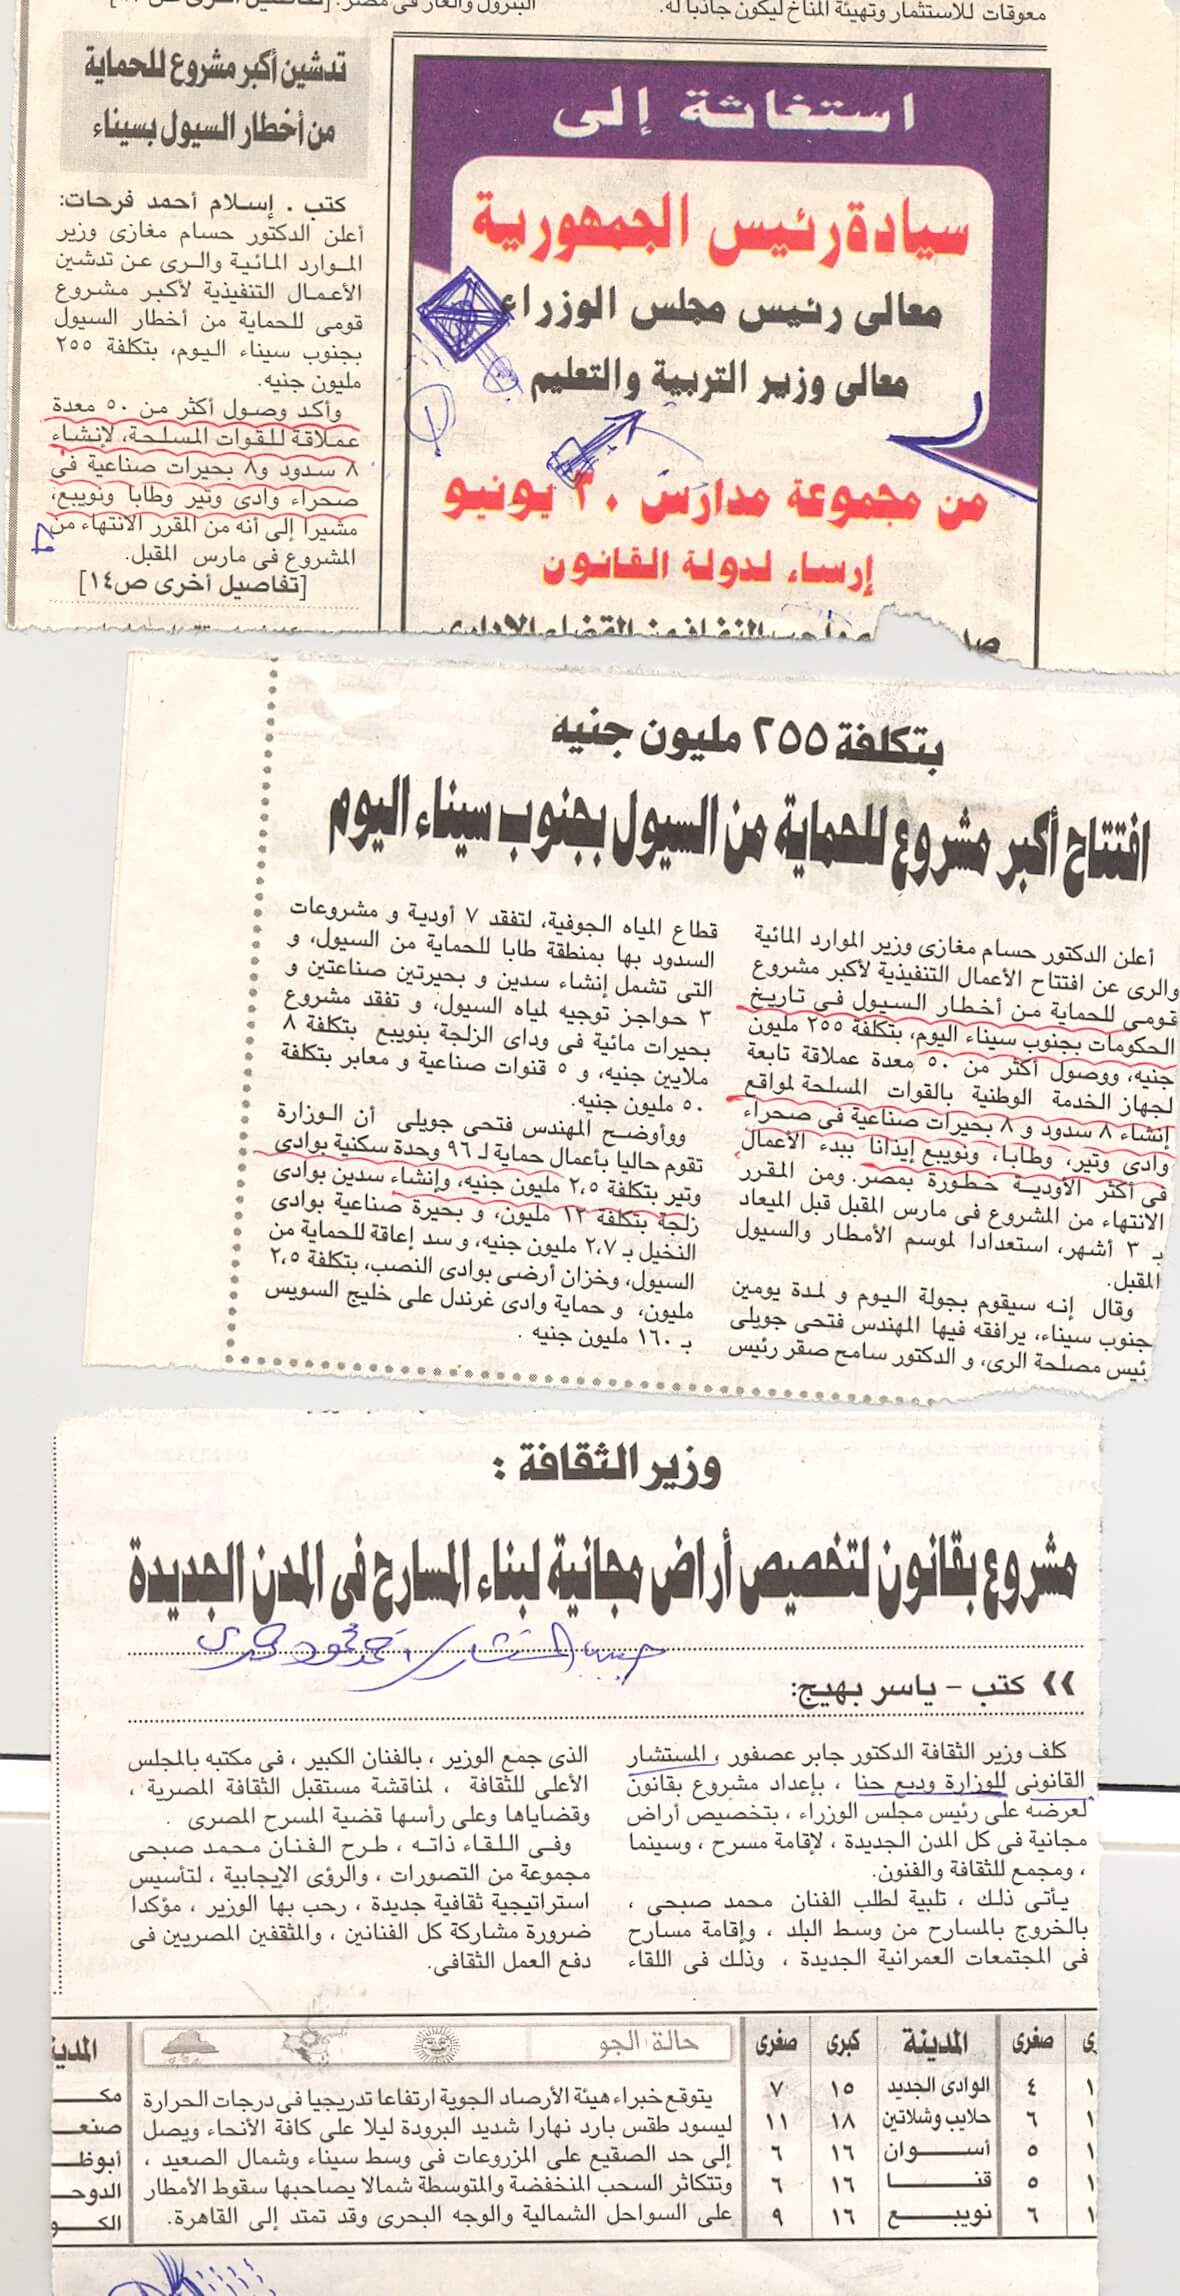 معوقات للاستثمار وتهيئة المناخ ليكون جاذبا له.
استغاثة إلى
سيادة رئيس الجمهورية
معالى رئيس مجلس الوزراء
معالى وزير التربية والتعليم
من مجموعة مدارس ٣٠ يونيو
إرساء لدولة القانون
تدشين أكبر مشروع للحماية
من أخطار السيول بسيناء
كتب . إسلام أحمد فرحات:
أعلن الدكتور حسام مغازى وزير
الموارد المائية والرى عن تدشين
الأعمال التنفيذية لأكبر مشروع
قومى للحماية من أخطار السيول
بجنوب سيناء اليوم، بتكلفة ٢٥٥
مليون جنيه.
وأكد وصول أكثر من ٥٠ معدة
عملاقة للقوات المسلحة، لإنشاء
٨ سدود و٨ بحيرات صناعية فى
صحراء وادى وتير وطابا ونويبع،
مشيرا إلى أنه من المقرر الانتهاء من
المشروع فى مارس المقبل.
[تفاصيل أخرى ص١٤]
بتكلفة ٢٥٥ مليون جنيه
افتتاح أكبر مشروع للحماية من السيول بجنوب سيناء اليوم
أعلن الدكتور حسام مغازى وزير الموارد المائية
والرى عن افتتاح الأعمال التنفيذية لأكبر مشروع
قومى للحماية من أخطار السيول فى تاريخ
الحكومات بجنوب سيناء اليوم، بتكلفة ٢٥٥ مليون
جنيه، ووصول أكثر من ٥٠ معدة عملاقة تابعة
لجهاز الخدمة الوطنية بالقوات المسلحة لمواقع
إنشاء ٨ سدود و ٨ بحيرات صناعية فى صحراء
وادى وتير، وطابا، ونويبع إيذانا ببدء الأعمال
فى أكثر الأودية خطورة بمصر. ومن المقرر
الانتهاء من المشروع فى مارس المقبل قبل الميعاد
بـ ٣ أشهر، استعدادا لموسم الأمطار والسيول
المقبل.
وقال إنه سيقوم بجولة اليوم و لمدة يومين
جنوب سيناء، يرافقه فيها المهندس فتحى جويلى
ئيس مصلحة الرى، و الدكتور سامح صقر رئيس
قطاع المياه الجوفية، لتفقد ٧ أودية و مشروعات
السدود بها بمنطقة طابا للحماية من السيول، و
التى تشمل إنشاء سدين و بحيرتين صناعتين و
٣ حواجز توجيه لمياه السيول، و تفقد مشروع
بحيرات مائية فى وداى الزلجة بنويبع بتكلفة ٨
ملايين جنيه، و ٥ قنوات صناعية و معابر بتكلفة
٥٠ مليون جنيه.
ووأوضح المهندس فتحى جويلى أن الوزارة
تقوم حاليا بأعمال حماية لـ ٩٦ وحدة سكنية بوادى
وتير بتكلفة ٢,٥ مليون جنيه، وإنشاء سدين بوادى
زلجة بتكلفة ١٢ مليون، و بحيرة صناعية بوادى
النخيل بـ ٢,٧ مليون جنيه، و سد إعاقة للحماية من
السيول، وخزان أرضى بوادى النصب، بتكلفة ٢,٥
مليون، و حماية وادى غرندل على خليج السويس
بـ ١٦٠ مليون جنيه .
وزير الثقافة :
مشروع بقانون لتخصيص أراض مجانية لبناء المسارح فى المدن الجديدة
كتب – ياسر بهيج:
كلف وزير الثقافة الدكتور جابر عصفور ، المستشار
القانونى للوزارة وديع حنا ، بإعداد مشروع بقانون
لعرضه على رئيس مجلس الوزراء ، بتخصيص أراض
مجانية فى كل المدن الجديدة ، لإقامة مسرح ، وسينما
، ومجمع للثقافة والفنون.
يأتى ذلك ، تلبية لطلب الفنان محمد صبحى ،
بالخروج بالمسارح من وسط البلد ، وإقامة مسارح
فى المجتمعات العمرانية الجديدة ، وذلك فى اللقاء
الذى جمع الوزير ، بالفنان الكبير ، فى مكتبه بالمجلس
الأعلى للثقافة ، لمناقشة مستقبل الثقافة المصرية ،
وقضاياها وعلى رأسها قضية المسرح المصرى .
وفى اللقاء ذاته ، طرح الفنان محمد صبحى
مجموعة من التصورات ، والرؤى الإيجابية ، لتأسيس
استراتيجية ثقافية جديدة ، رحب بها الوزير ، مؤكدا
ضرورة مشاركة كل الفنانين ، والمثقفين المصريين فى
دفع العمل الثقافى.
صغرى المدينة كبرى صغرى
٤ الوادى الجديد ١٥ ٧
٦ حلايب وشلاتين ١٨ ١١
٥ أسوان ١٦ ٦
٥ قنا ١٦ ٦
٦ نويبع ١٦ ٩
حالة الجو
يتوقع خبراء هيئة الأرصاد الجوية ارتفاعا تدريجيا فى درجات الحرارة
ليسود طقس بارد نهارا شديد البرودة ليلا على كافة الأنحاء ويصل
إلى حد الصقيع على المزروعات فى وسط سيناء وشمال الصعيد ،
وتتكاثر السحب المنخفضة والمتوسطة شمالا يصاحبها سقوط الأمطار
على السواحل الشمالية والوجه البحرى وقد تمتد إلى القاهرة.
المدي
مكـ
صنعـ
أبوظـ
الدوحـ
الكـو